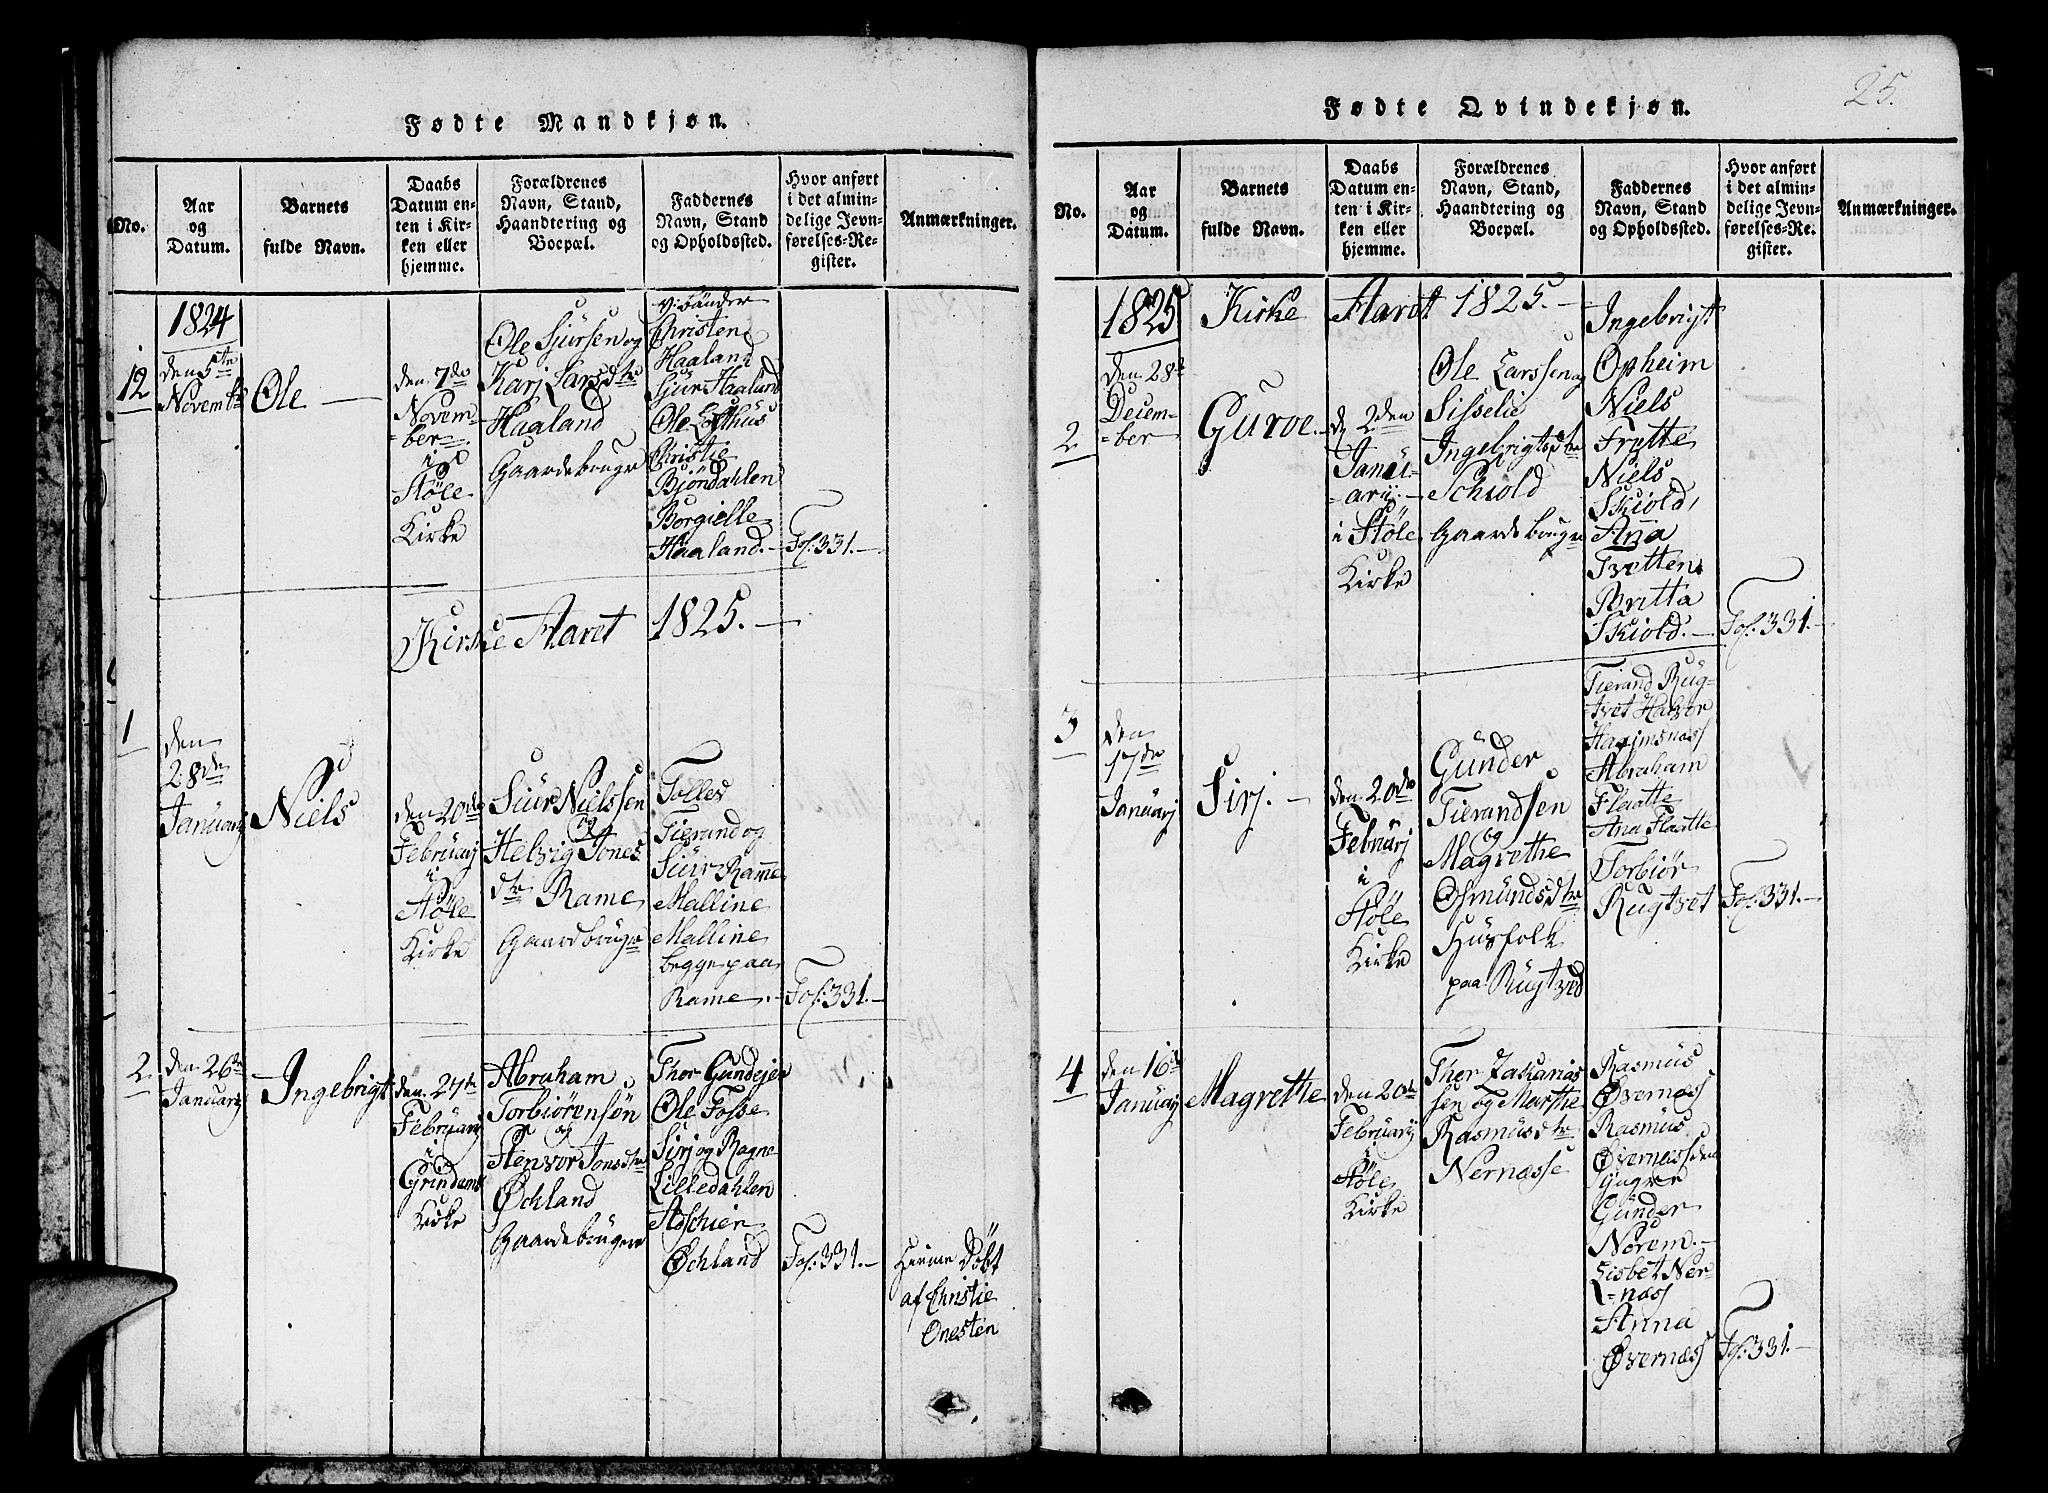 Fødte Mandkjøn.
No.
Aar
og
Datum.
Barnets
fulde Navn.
Daabs
Datum en-
ten i Kir-
ken eller
hjemme.
Forældrenes
Navn, Stand,
Haandtering og
Boepæl.
Faddernes
Navn, Stand
og Opholdssted.
Hvor anført
i det almin-
delige Jevn-
førelses-Re-
gister.
Anmærkninger.
12
1824
den 5te
Novembr
Ole
den 7de
Novem
=ber
i
Støle
Kirke
Ole Sjursen og
Karj Larsdtr
Haaland
Gaardebruger
Christen
Haaland
Sjur Haaland
Ole Lofthus
Christie
Bjöndahlen
Borgielle
Haaland.
Fol: 331.
Kirke Aaret 1825.
1
den
28de
Januarj
Niels
den 20de
Februarj
i
Støle
Kirke
Siur Nielssen
og
Helvig Jones
dtr Rame
Gaardbruger
Tolles
Tierand og
Siur Rame
Malline
Malline
begge paa
Rame.
Fol: 331.
2
den 26de
Januarj
Ingebrigt
den 27de
Februarj
i
Grindems
Kirke
Abraham
Torbiörensön
og
Stenvor Jonsdtr
Øchland
Gaardebrugere
Thor Gundejer
Ole Fosse
Sirj og Ragne
Lilledahlen
Aschier
Øchland
Fol: 331.
Hiemme Døbt
af Christie
Onesten
25.
Fødte Qvindekjøn.
No.
Aar
og
Datum.
Barnets
fulde Navn.
Daabs
Datum en-
ten i Kir-
ken eller
hjemme.
Forældrenes
Navn, Stand,
Haandtering og
Boepæl.
Faddernes
Navn, Stand
og Opholdssted.
Hvor anført
i det almin-
delige Jevn-
førelses-Re-
gister.
Anmærkninger.
1825 Kirke Aaret 1825.
2
den 28de
Decem-
=ber
Guroe.
d. 2den
Janu-
=arij.
i Støle
Kirke
Ole Larssen og
Sisselie
Ingebrigtsdtr
Schiold
Gaardebruger
Ingebrigt
Opheim
Niels
Frette
Niels
Skiold,
Anna
Tvetten
Britta
Skiold.
Fol: 331.
3
den
17de
Januarj
Sirj.
den 20de
Februarj
i
Støle
Kirke
Gunder
Tierandsen
og
Magrethe
Osmundsdtr
Husfolk
paa Rugtved
Tierand Rug-
tvet Halvor
Haaimsnæss
Abraham
Flaatte
Ana Flaatte
Torbiør
Rugtvet
Fol: 331.
4
den 16de
Januarj
Magrethe
den 20de
Februarij
i
Støle
Kirke
Thor Zakarias
sen og Marthe
Rasmusdtr
Nernæsse
Rasmus
Øvernæss
Rasmus
Øvernæss den
yngre
Gunder
Norem.
Lisbet Ner-
=næss
Anna
Øvernæss
Fol: 331.